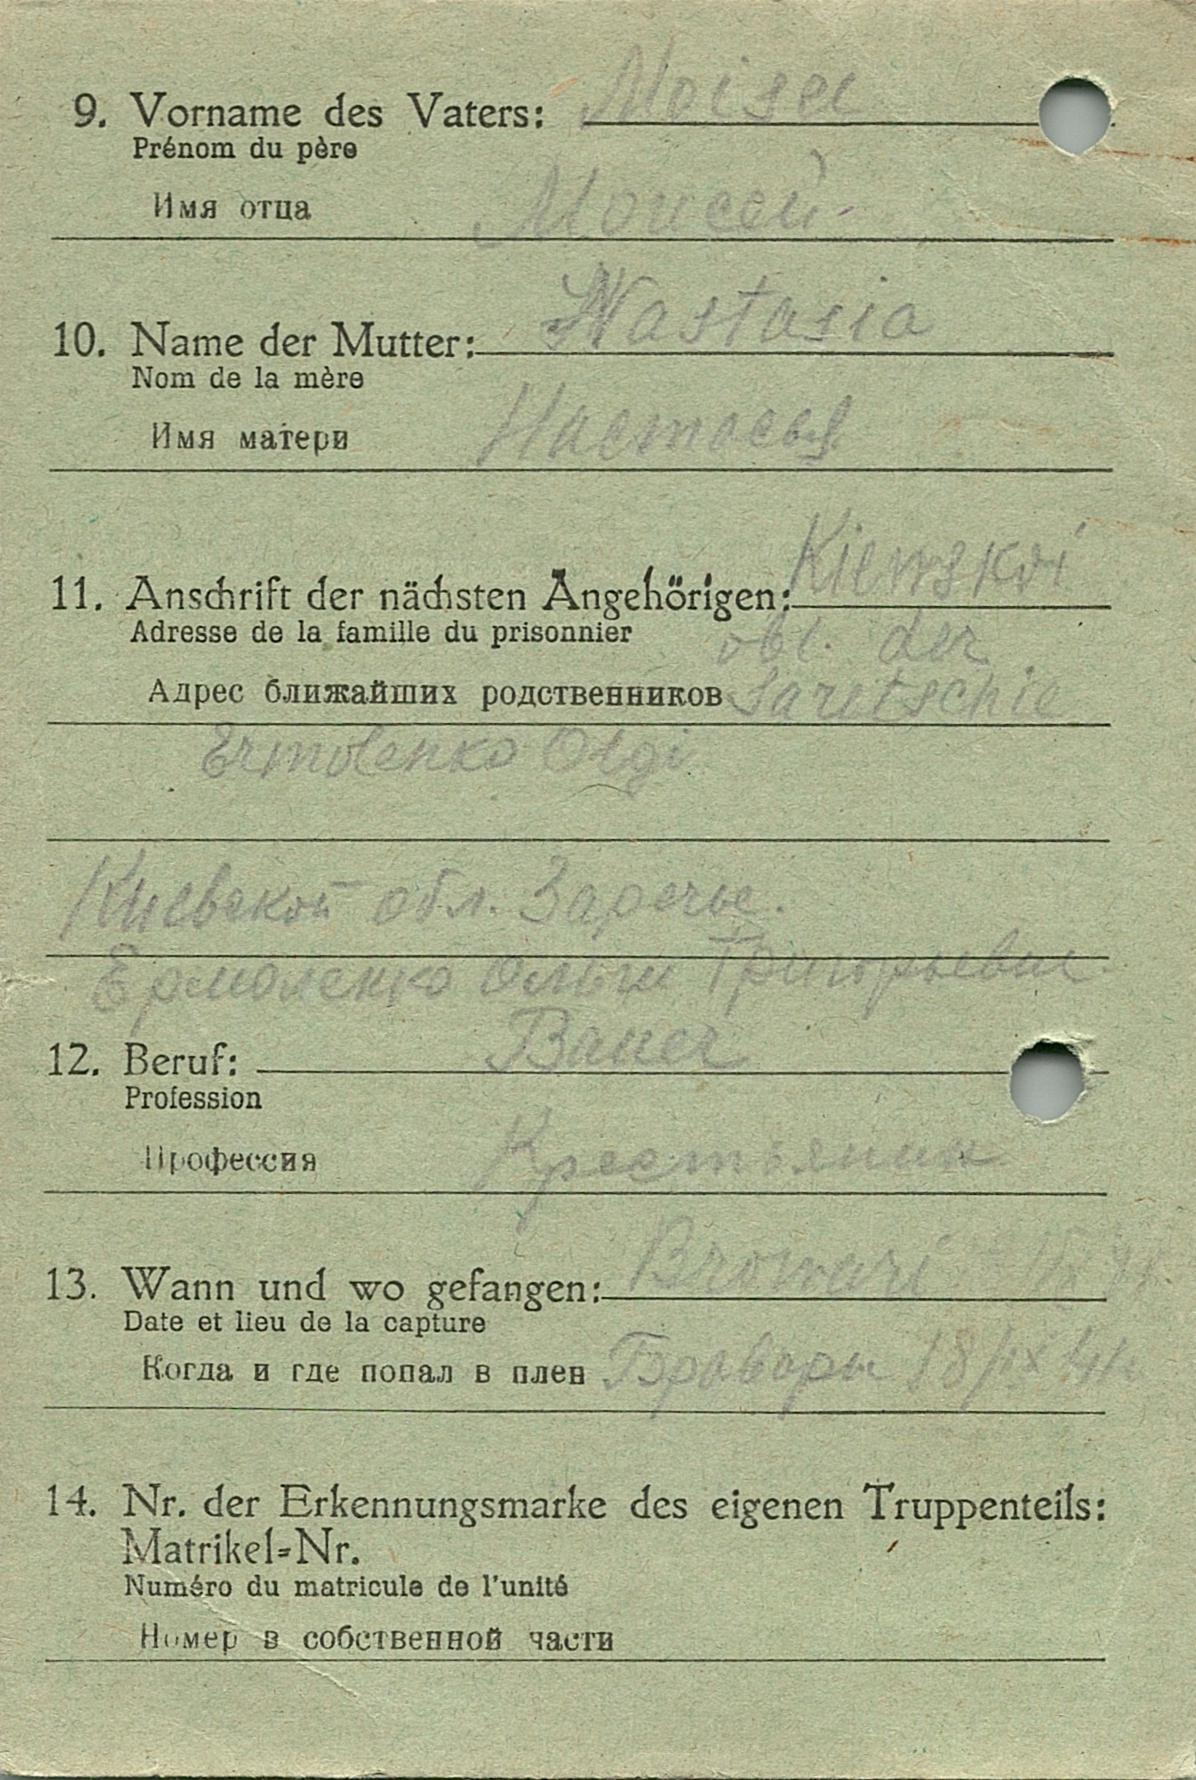 9. Vorname des Vaters: Moisei
Prénom du père
Имя отца Моисей
10. Name der Mutter: Nastasia
Nom de la mère
Имя матери Настасья
11. Anschrift der nächsten Angehörigen: Kiewskoi
Adresse de la famille du prisonnier obl. der
Адрес ближайших родственников Saretschie
Ermolenko Olgi
Киевской обл. Заречье.
Ермоленко Ольги
12. Beruf: Bauer
Profession
Профессия Крестьянин
13. Wann und wo gefangen: Browari
Date et lieu de la capture
Когда и где попал в плен Бровары 18/IX 41
14. Nr. der Erkennungsmarke des eigenen Truppenteils:
Matrikel=Nr.
Numéro du matricule de l'unité
Номер в собственной части